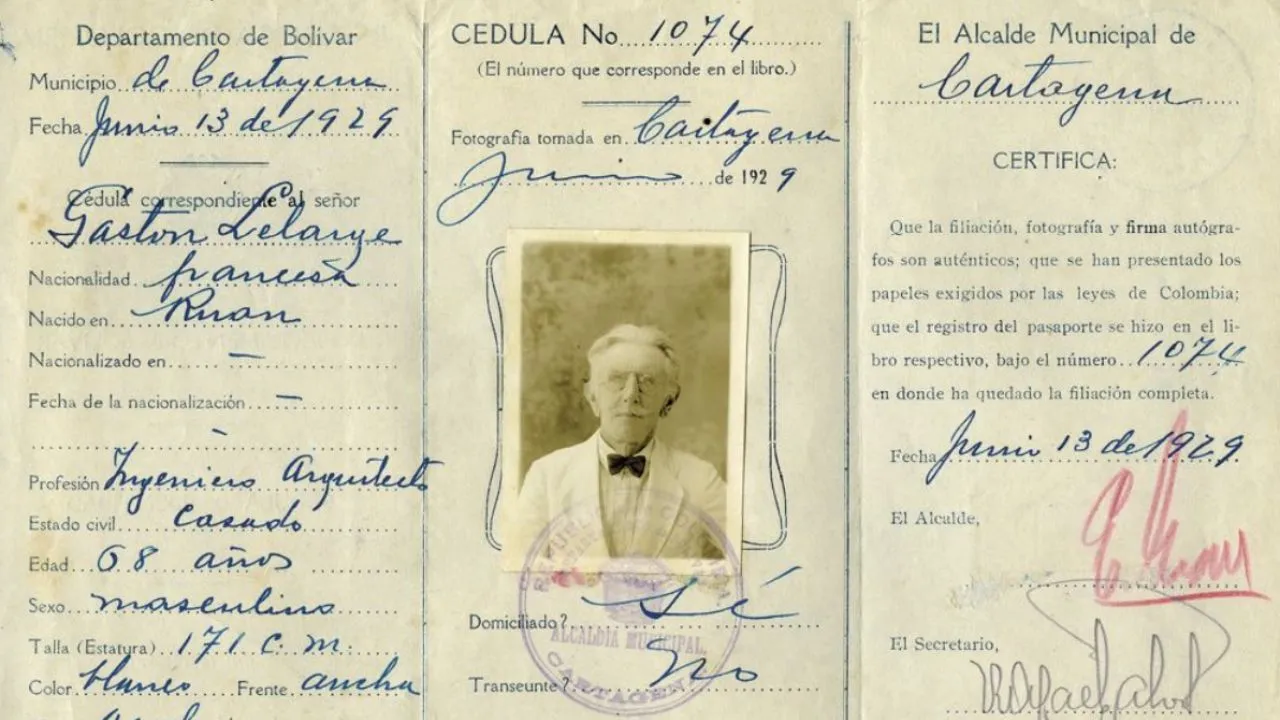 Departamento de Bolívar
Municipio de Cartagena
Fecha Junio 13 de 1929
Cédula correspondiente al señor
Gaston Lelarge
Nacionalidad francesa
Nacido en Ruan
Nacionalizado en —
Fecha de la nacionalización —
—
Profesión Ingeniero Arquitecto
Estado civil casado
Edad 68 años
Sexo masculino
Talla (Estatura) 171 c. m.
Color blanco Frente ancha
CEDULA No 1074
(El número que corresponde en el libro.)
Fotografía tomada en Cartagena
Junio de 1929
Domiciliado? Sí
Transeunte? No
ALCALDIA MUNICIPAL
CARTAGENA
El Alcalde Municipal de
Cartagena
CERTIFICA:
Que la filiación, fotografía y firma autógra-
fos son auténticos; que se han presentado los
papeles exigidos por las leyes de Colombia;
que el registro del pasaporte se hizo en el li-
bro respectivo, bajo el número 1074
en donde ha quedado la filiación completa.
Fecha Junio 13 de 1929
El Alcalde,
El Secretario,